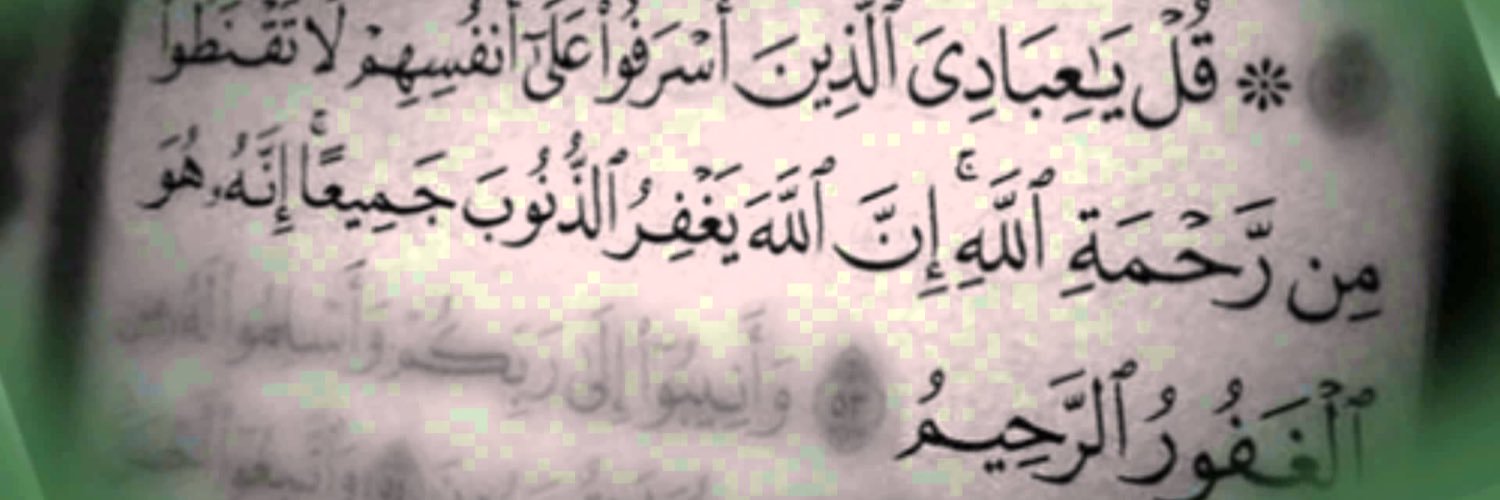 ۞ قُلْ يَـٰعِبَادِىَ ٱلَّذِينَ أَسْرَفُوا۟ عَلَىٰٓ أَنفُسِهِمْ لَا تَقْنَطُوا۟
مِن رَّحْمَةِ ٱللَّهِ ۚ إِنَّ ٱللَّهَ يَغْفِرُ ٱلذُّنُوبَ جَمِيعًا ۚ إِنَّهُۥ هُوَ
ٱلْغَفُورُ ٱلرَّحِيمُ ٥٣ وَأَنِيبُوٓا۟ إِلَىٰ رَبِّكُمْ وَأَسْلِمُوا۟ لَهُۥ مِن